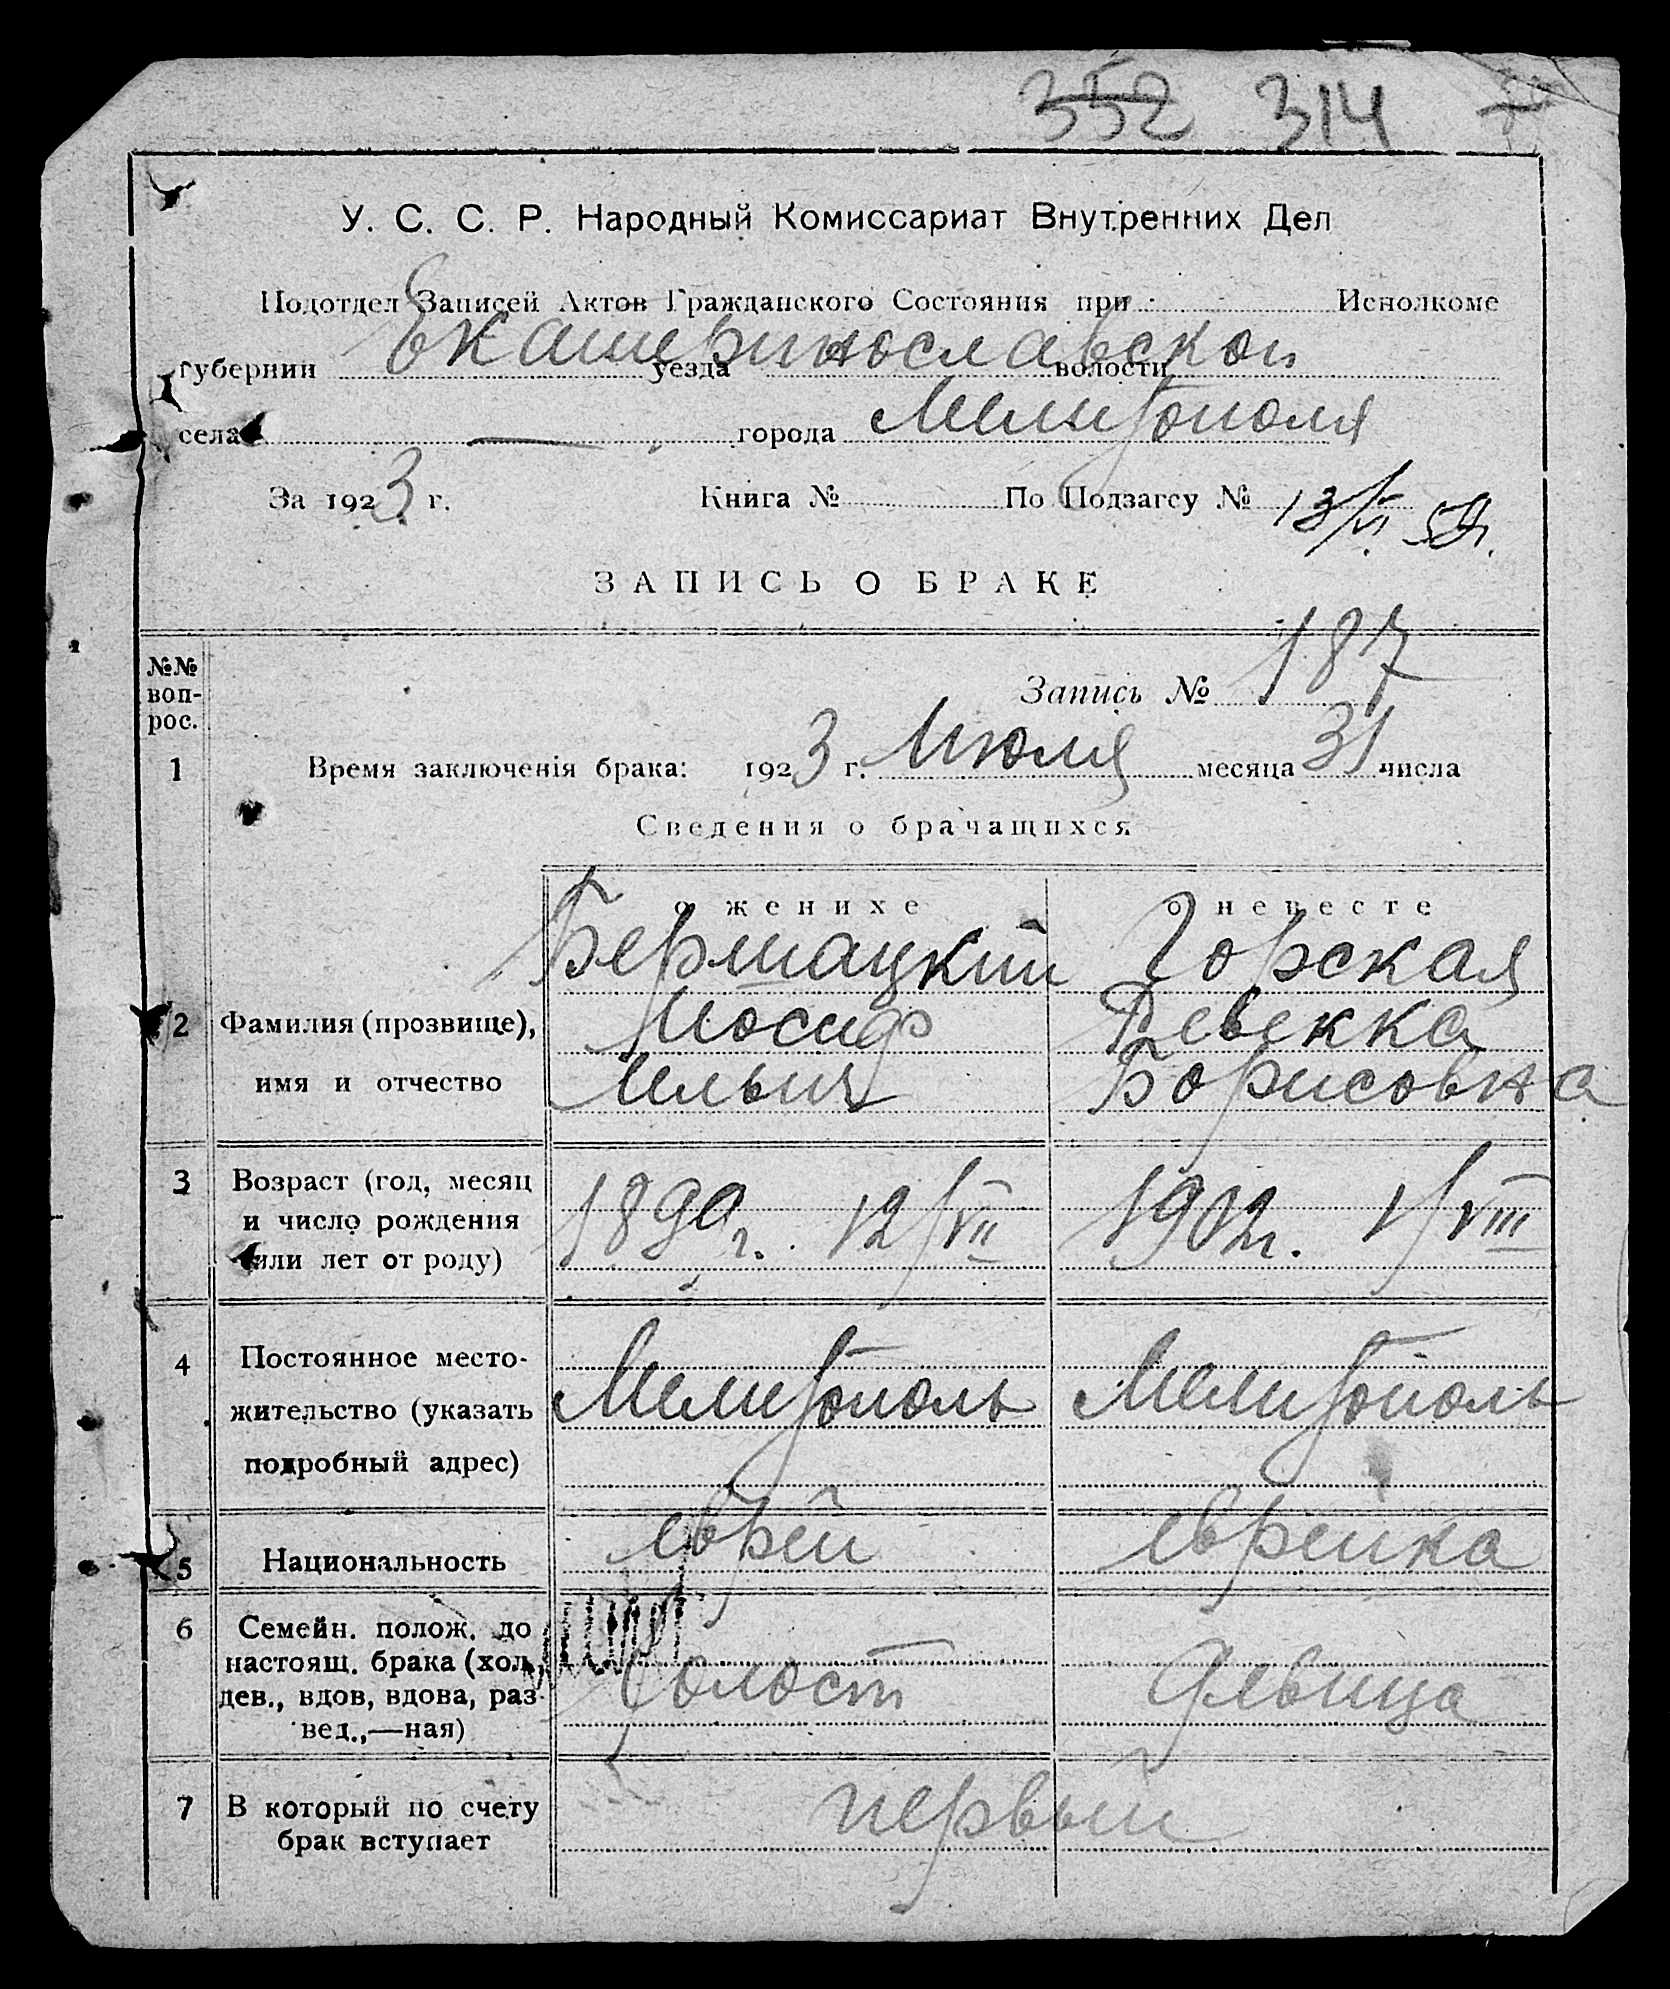 352 314
У. С. С. Р. Народный Комиссариат Внутренних Дел
Подотдел Записей Актов Гражданского Состояния при Исполкоме
губернии Екатеринославской уезда волости
села — города Мелитополя
За 1923 г. Книга № По Подзагсу № 13/VI
ЗАПИСЬ О БРАКЕ
№№ вопрос.
Запись № 187
1 Время заключенія брака: 1923 г. Июля месяца 31 числа
Сведения о брачащихся
о женихе о невесте
Бершацкий Горская
2 Фамилия (прозвище), Иосиф Ревекка
имя и отчество Ильич Борисовна
3 Возраст (год, месяц
и число рождения 1890 г. 12/VII 1902 г. 1/VIII
или лет от роду)
4 Постоянное место-
жительство (указать Мелитополь Мелитополь
подробный адрес)
5 Национальность еврей еврейка
6 Семейн. полож. до
настоящ. брака (хол.,
дев., вдов, вдова, раз- холост девица
вед.,—ная)
7 В который по счету первый
брак вступает